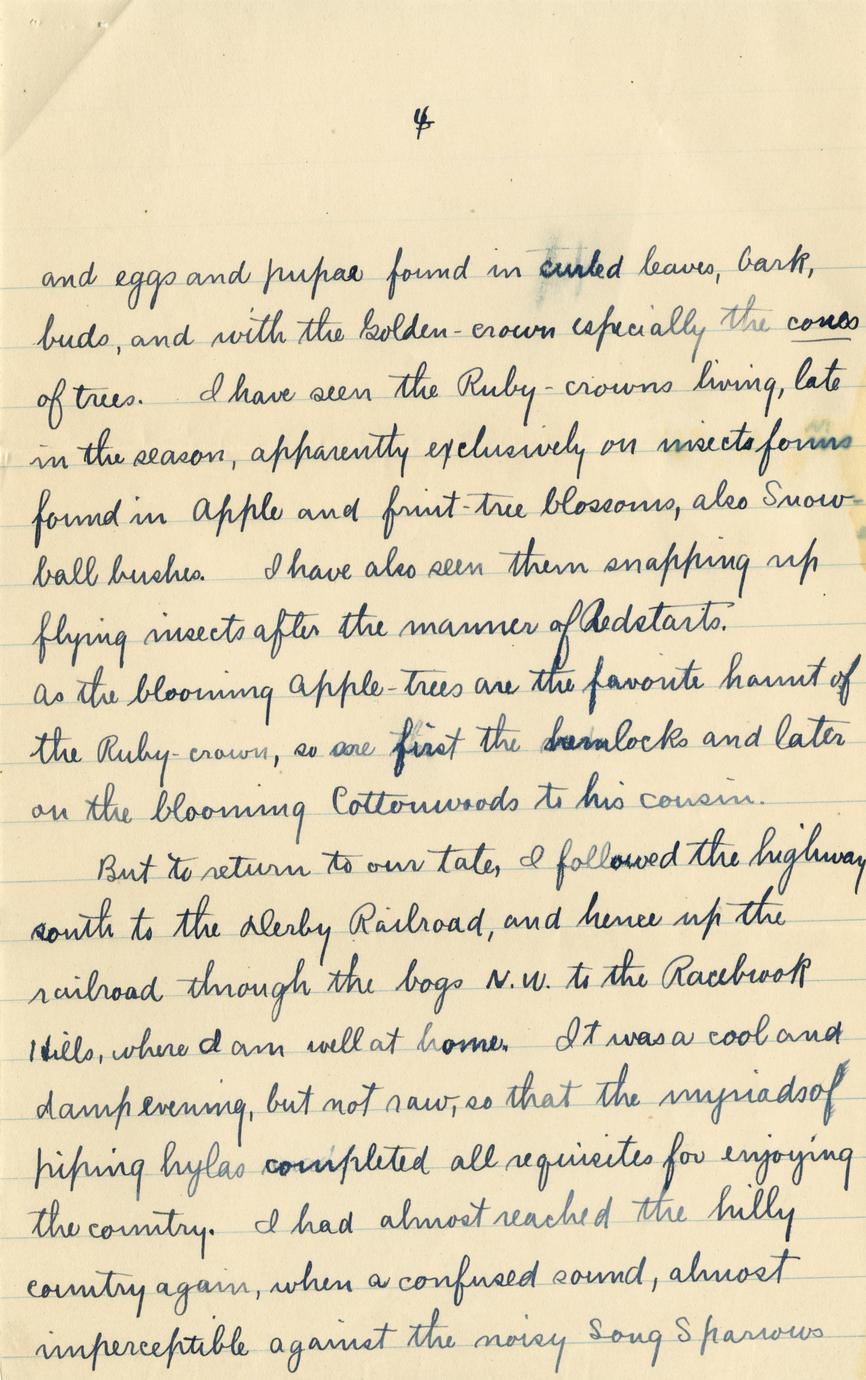 4
and eggs and pupae found in curled leaves, bark,
buds, and with the Golden-crown especially the cones
of trees. I have seen the Ruby-crowns living, late
in the season, apparently exclusively on insects forms
found in Apple and fruit-tree blossoms, also Snow-
ball bushes. I have also seen them snapping up
flying insects after the manner of Redstarts.
As the blooming Apple-trees are the favorite haunt of
the Ruby-crown, so are first the hemlocks and later
on the blooming Cottonwoods to his cousin.
But to return to our tale, I followed the highway
south to the Derby Railroad, and hence up the
railroad through the bogs N.W. to the Racebrook
Hills, where I am well at home. It was a cool and
damp evening, but not raw, so that the myriads of
piping hylas completed all requisites for enjoying
the country. I had almost reached the hilly
country again, when a confused sound, almost
imperceptible against the noisy Song Sparrows